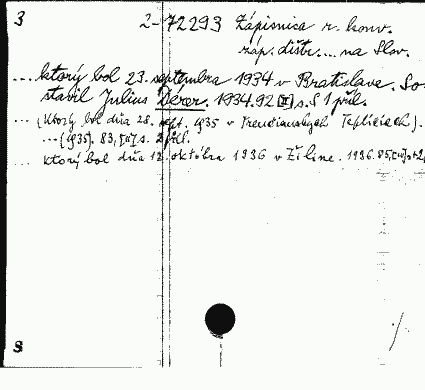 3 2-72293 Zápisnica r. konv.
záp. dištr.... na Slov.
... ktorý bol 23. septembra 1934 v Bratislave. So-
stavil Julius Dérer. 1934. 92 [II] s. S 1 príl.
... (ktorý bol dňa 28. sept. 1935 v Trenčianskych Tepliciach).
... (1935). 83, [II] s. 2 príl.
... ktorý bol dňa 12. októbra 1936 v Žiline. 1936. 85,
S